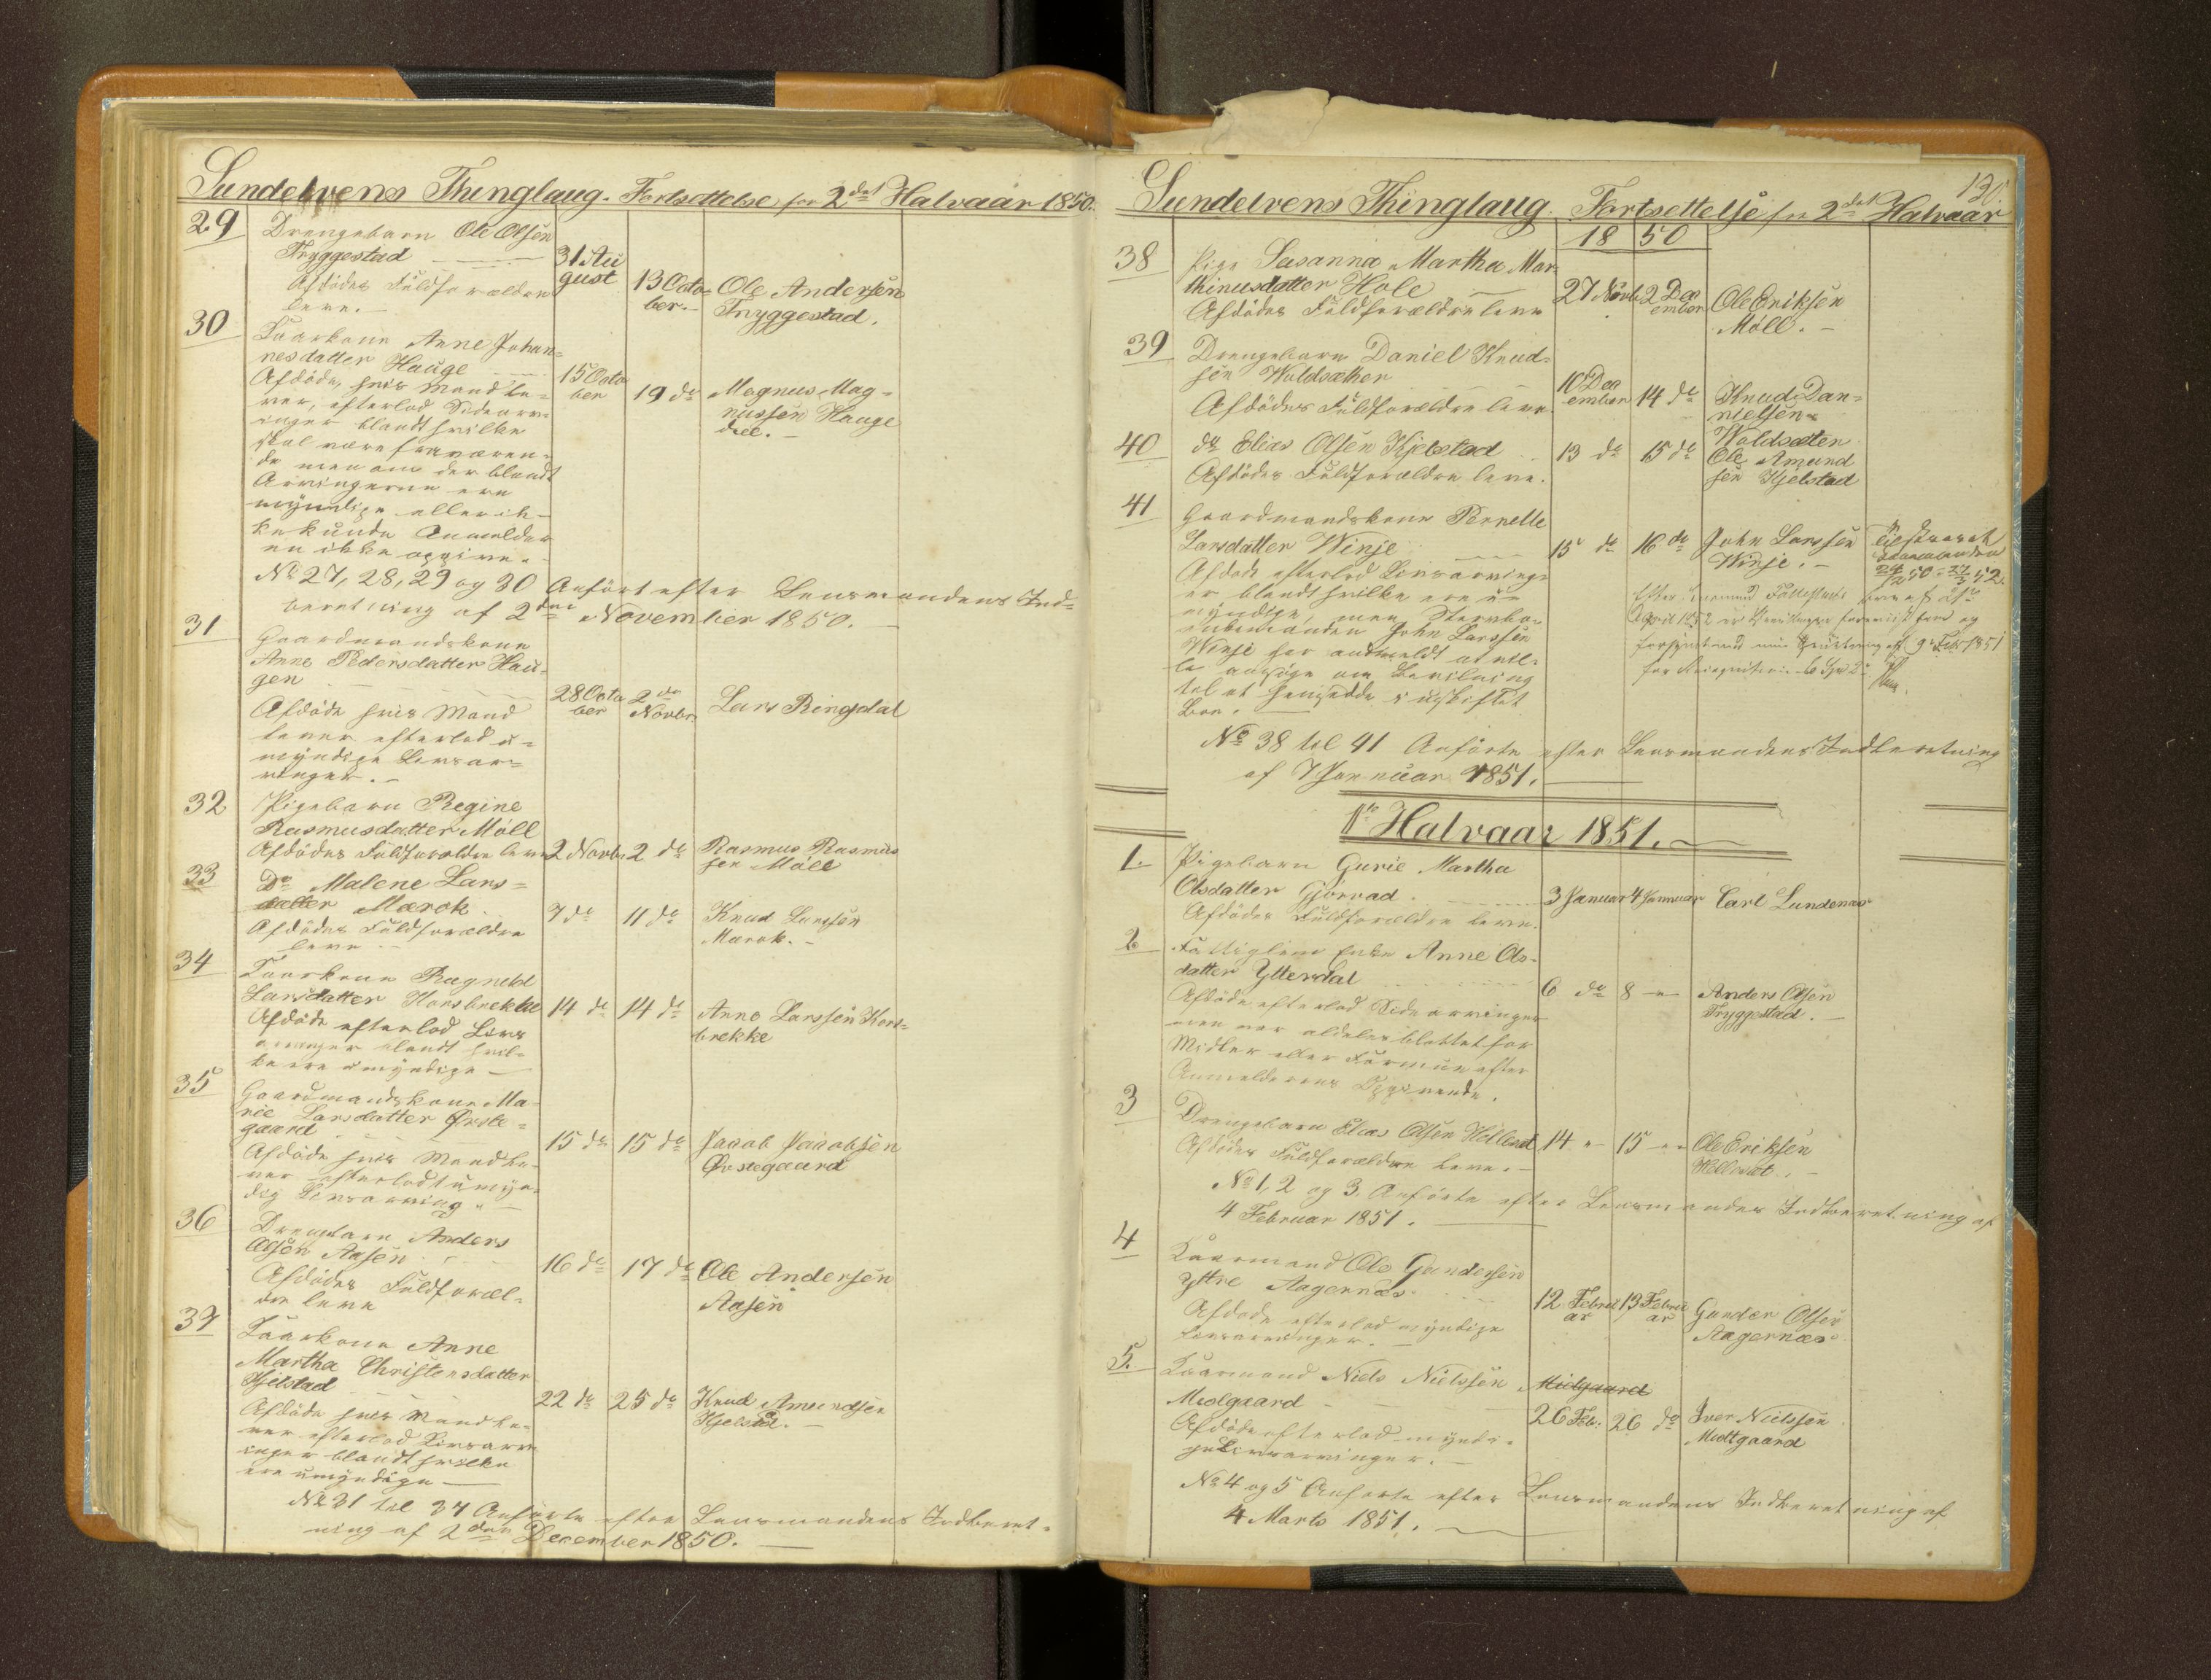 Sundelvens Thinglaug. Fortsættelse for 2det Halvaar 1850.
29
Drengebarn Ole Olsen
Tryggestad
Afdödes Fuldforældre
leve.
31 Au
gust
13 Octo=
ber.
Ole Andersen
Tryggestad.
30
Kaarkone Anne Johan=
nesdatter Hauge
Afdöde, hvis Mand le=
ver, efterlod Sidearv=
inger blandt hvilke
skal være fraværen=
de men om der blandt
Arvingerne ere
myndige eller ik=
ke kunde Anmelder
en ikke opgive.
15 Octo
ber
19 do
Magnus Mag=
nussen Hauge
No 27, 28, 29 og 30 Anfört efter Lensmandens Ind=
beretning af 2den November 1850.
31
Gaardmandskone
Anne Pedersdatter Hau=
gen
Afdöde hvis Mand
lever efterlod u=
myndige Livsar=
vinger.
28 Octo
ber
2 do
Novbr
Lars Ringdal
32
Pigebarn Regine
Rasmusdatter Möll
Afdödes Fuldforældre leve
2 Novbr
2 do
Rasmus Rasmus
sen Möll
33
Do Malene Lars=
datter Marok
Afdödes Fuldforældre
leve
7 do
11 do
Knud Larssen
Marok.
34
Kaarkone Ragnehl
Larsdatter Korsbrekke
Afdöde efterlod Livs
arvinger blandt hvil=
ke ere umyndige
14 do
14 do
Anne Larssen Kors=
brekke
35
Gaardmandskone Ma=
rie Larsdatter Örste=
gaard
Afdöde hvis Mand le=
ver efterlod 1 umyn=
dig Livsarving
15 do
15 do
Jacob Jacobsen
Örstegaard
36
Drengbarn Anders
Olsen Aasen
Afdödes Fuldforæl=
dre leve
16 do
17 do
Ole Andersen
Aasen
37
Kaarkone Anne
Martha Christensdatter
Kjelstad
Afdöde hvis Mand le=
ver efterlod Livsarv
inger blandt hvilke
ere umyndige
22 do
25 do
Knud Amundsen
Kjelstad.
No 31 til 37 Anförte efter Lensmandens Indberet=
ning af 2den December 1850.
130.
Sundelvens Thinglaug Fortsettelse for 2det Halvaar
18 50
38
Pige Susanna Martha Mar=
thinusdatter Hole
Afdödes Fuldforældre leve
27 Novb
2 Dec
ember
Ole Eriksen
Möll.
39
Drengebarn Daniel Knud=
sen Woldsæther
Afdödes Fuldforældre leve.
10 Dec
ember
14 do
Knud Dan=
nielsen
Woldsæten
40
do Elias Olsen Kjelstad
Afdödes Fuldforældre leve.
13 do
15 do
Ole Amund
sen Kjelstad
41
Gaardmandskone Pernelle
Larsdatter Winje
Afdöde efterlod Livsarving=
er blandt hvilke ere u=
myndige, men Stervbo=
enkemanden John Larssen
Winje har anmeldt at vil=
le ansöge om Bevilning
til at hensidde i uskiftet
Boe.
15 do
16 do
John Larssen
Winje.
April 1852
9 Feb 1851
No 38 til 41 Anförte efter Lensmandens Indberetning
af 7 Januar 1851.
1te Halvaar 1851.
1.
Pigebarn Gurie Martha
Olsdatter Gjörvad
Afdödes Fuldforældre leve.
3 Januar
4 Januar
Carl Lundenæs
2
Fattiglem Enke Anne Ols=
datter Ytterdal
Afdöde efterlod Sidearvinger
men var aldeles blottet for
Midler eller Formue efter
Anmelderens Opgivende.
6 do
8
Anders Olsen
Tryggestad.
3
Drengebarn Elias Olsen Hellevad
Afdödes Fuldforældre leve.
14
15
Ole Eriksen
No 1, 2 og 3. Anförte efter Lensmandens Indberetning af
4 Februar 1851.
4
Kaarmand Ole Gundersen
Yttre Aagernæs.
Afdöde efterlod myndige
Livsarvinger.
12 Febru
ar
13 Febru
ar
Gunder Olsen
Aagernæs
5.
Kaarmand Niels Nielssen Midgaard
Midgaard
Afdöde efterlod myndi=
ge Livsarvinger.
26 Feb.
26 do
Iver Nielssen
Midtgaard
No 4 og 5 Anförte efter Lensmandens Indberetning af
4 Marts 1851.